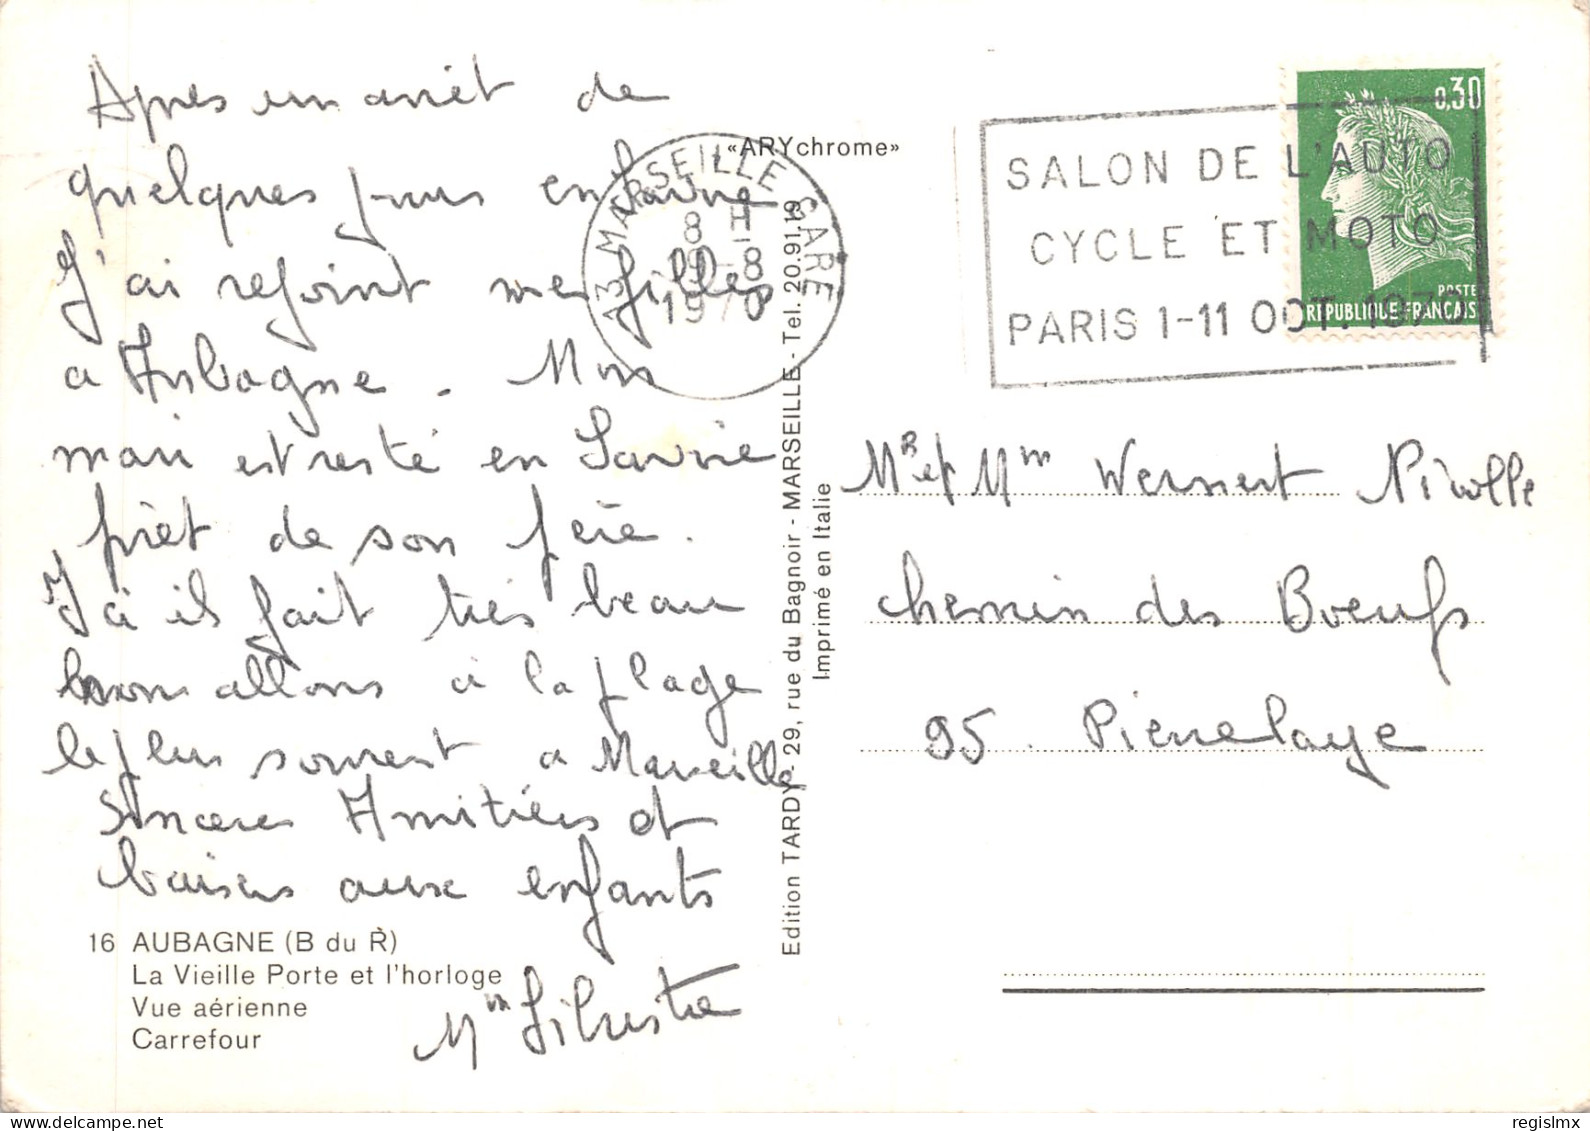 Après un arrêt de
quelques jours en Savoie
J'ai rejoint mes filles
a Aubagne. Mon
mari est resté en Savoie
prêt de son père.
Ici il fait très beau
nous allons à la plage
le plus souvent a Marseille
Sincères Amitiés et
baisers aux enfants
Mm Silvestre
16 AUBAGNE (B du R)
La Vieille Porte et l'horloge
Vue aérienne
Carrefour
«ARYchrome»
Edition TARDY - 29, rue du Bagnoir - MARSEILLE - Tel. 20.91.19
Imprimé en Italie
13 MARSEILLE GARE
8 H
19-8
1970
SALON DE L'AUTO
CYCLE ET MOTO
PARIS 1-11 OCT. 1970
0,30
POSTE
REPUBLIQUE FRANCAISE
MR et Mm Wernert Nicolle
chemin des Boeufs
95. Pierrelaye
regislmx